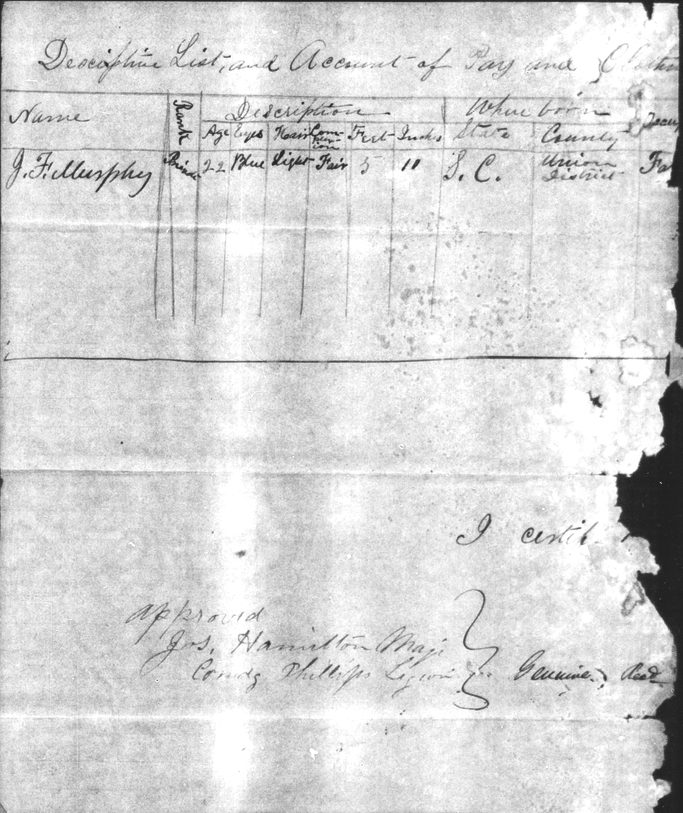 Desciptive List, and Account of Pay and Clothin
Name Rank Description Where born Occup
Age Eyes Hair Complexion Feet Inches State County
J. F. Murphy 22 Blue Light Fair 5 11 S. C. Union District Fa
I certif
approved
Jos, Hamilton Maj
Comdg Phillips Legion